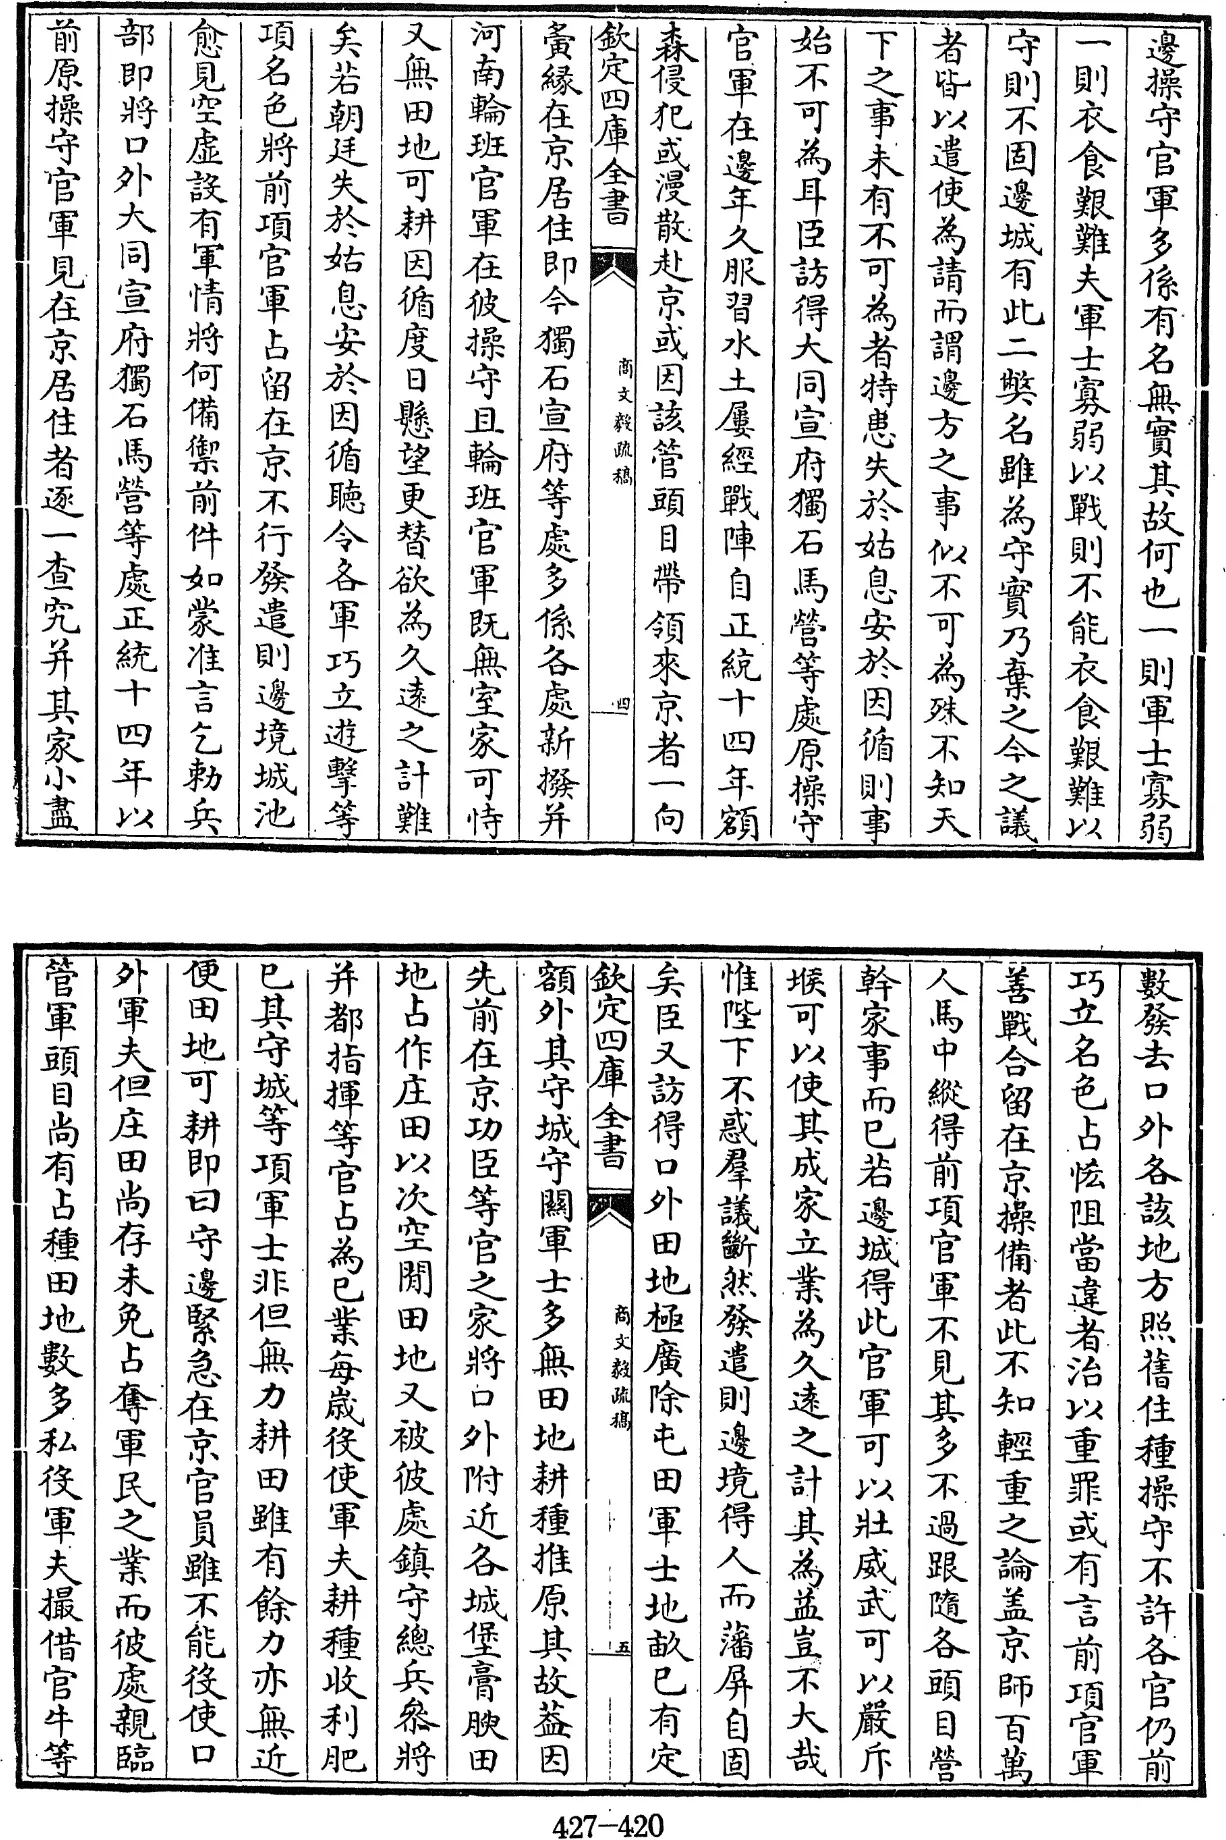 邊操守官軍多係有名無實其故何也一則軍士寡弱
一則衣食艱難夫軍士寡弱以戰則不能衣食艱難以
守則不固邊城有此二獘名雖為守實乃棄之今之議
者皆以遣使為請而謂邊方之事似不可為殊不知天
下之事未有不可為者特患失於姑息安於因循則事
始不可為耳臣訪得大同宣府獨石馬營等處原操守
官軍在邊年久服習水土屢經戰陣自正統十四年額
森侵犯或漫散赴京或因該管頭目帶領來京者一向
欽定四庫全書
商文毅疏稿
四
夤緣在京居住即今獨石宣府等處多係各處新撥并
河南輪班官軍在彼操守且輪班官軍既無室家可恃
又無田地可耕因循度日懸望更替欲為久遠之計難
矣若朝廷失於姑息安於因循聽令各軍巧立遊擊等
項名色將前項官軍占留在京不行發遣則邊境城池
愈見空虛設有軍情將何備禦前件如蒙准言乞勅兵
部即將口外大同宣府獨石馬營等處正統十四年以
前原操守官軍見在京居住者逐一查究并其家小盡
數發去口外各該地方照舊住種操守不許各官仍前
巧立名色占恡阻當違者治以重罪或有言前項官軍
善戰合留在京操備者此不知輕重之論盖京師百萬
人馬中縱得前項官軍不見其多不過跟隨各頭目營
幹家事而已若邊城得此官軍可以壯威武可以嚴斥
堠可以使其成家立業為久遠之計其為益豈不大哉
惟陛下不惑羣議斷然發遣則邊境得人而藩屏自固
矣臣又訪得口外田地極廣除屯田軍士地畝已有定
欽定四庫全書
商文毅疏稿
五
額外其守城守關軍士多無田地耕種推原其故葢因
先前在京功臣等官之家將口外附近各城堡膏腴田
地占作庄田以次空閒田地又被彼處鎮守總兵叅將
并都指揮等官占為已業每歲役使軍夫耕種收利肥
已其守城等項軍士非但無力耕田雖有餘力亦無近
便田地可耕即曰守邊緊急在京官員雖不能役使口
外軍夫但庄田尚存未免占奪軍民之業而彼處親臨
管軍頭目尚有占種田地數多私役軍夫撮借官牛等
427—420